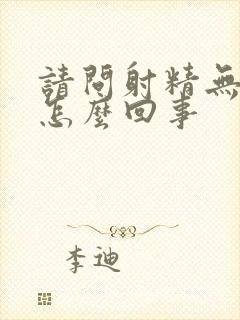 請問射精無
怎麼回事
李迪